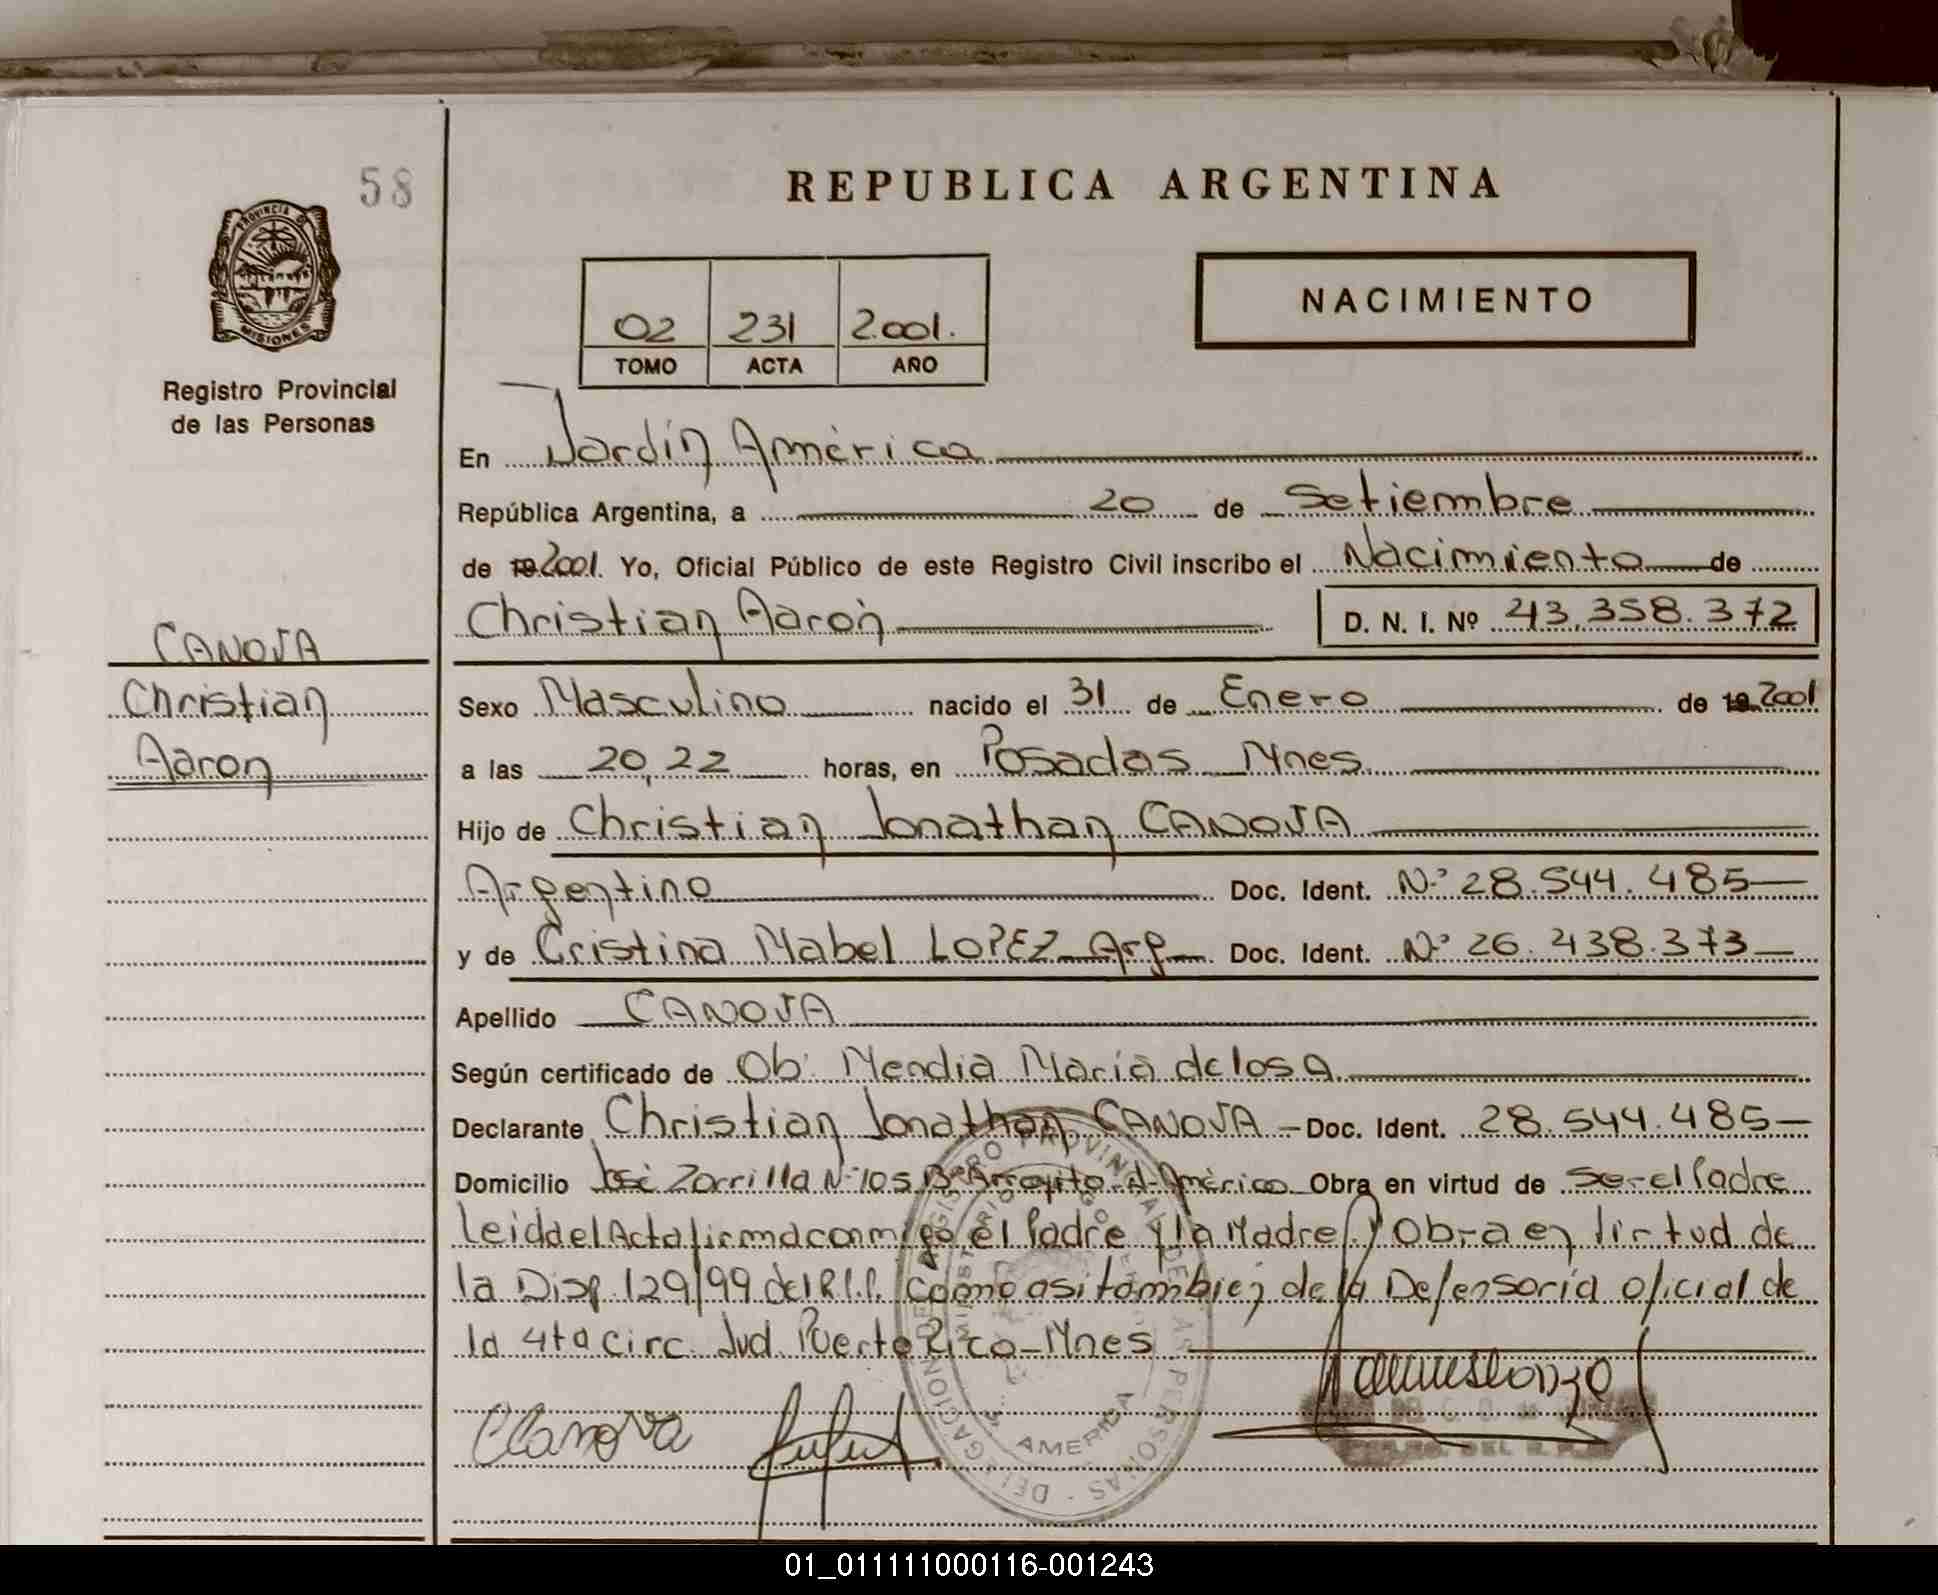 58
REPUBLICA ARGENTINA
PROVINCIA D
MISIONES
Registro Provincial
de las Personas
02 231 2.001.
TOMO ACTA AÑO
NACIMIENTO
En Jardín América
República Argentina, a 20 de Setiembre
de 19 2001. Yo, Oficial Público de este Registro Civil inscribo el Nacimiento de
Christian Aarón D. N. I. Nº 43.358.372
CANOVA
Christian
Aaron
Sexo Masculino nacido el 31 de Enero de 19 2001
a las 20,22 horas, en Posadas Mnes
Hijo de Christian Jonathan CANOVA
Argentino Doc. Ident. Nº 28.544.485
y de Cristina Mabel LOPEZ Arg Doc. Ident. Nº 26.438.373
Apellido CANOVA
Según certificado de Ob: Mendia María de los A
Declarante Christian Jonathan CANOVA - Doc. Ident. 28.544.485
Domicilio José Zorrilla Nº 105 Bº Arroyito J. América Obra en virtud de Ser el Padre
Leida el Acta firma conmigo el Padre y la Madre y Obra en Virtud de
la Disp. 129/99 del R.P.P. como asi tambien de la Defensoría oficial de
la 4ta Circ. Jud. Puerto Rico - Mnes
CCanova
REGISTRO PROVINCIAL DE LAS PERSONAS - DELEGACION
AMERICA
01_011111000116-001243